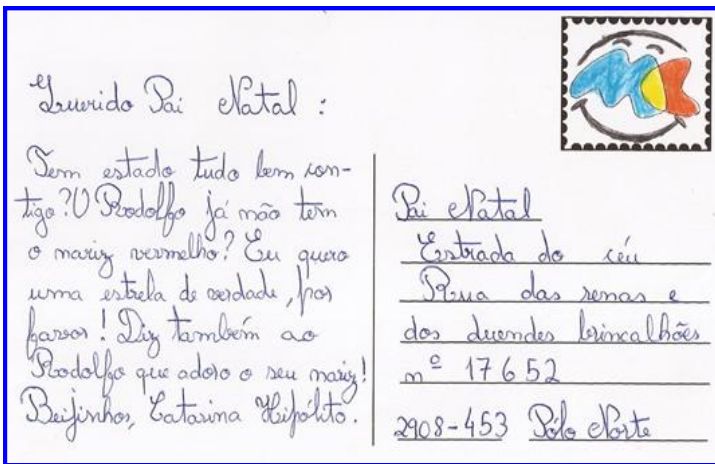 Querido Pai Natal :
Tem estado tudo bem con-
tigo? O Rodolfo já não tem
o nariz vermelho? Eu quero
uma estrela de verdade, por
favor! Diz também ao
Rodolfo que adoro o seu nariz!
Beijinhos, Catarina Hipólito.
Pai Natal
Estrada do céu
Rua das renas e
dos duendes brincalhões
nº 17652
2908-453 Pólo Norte